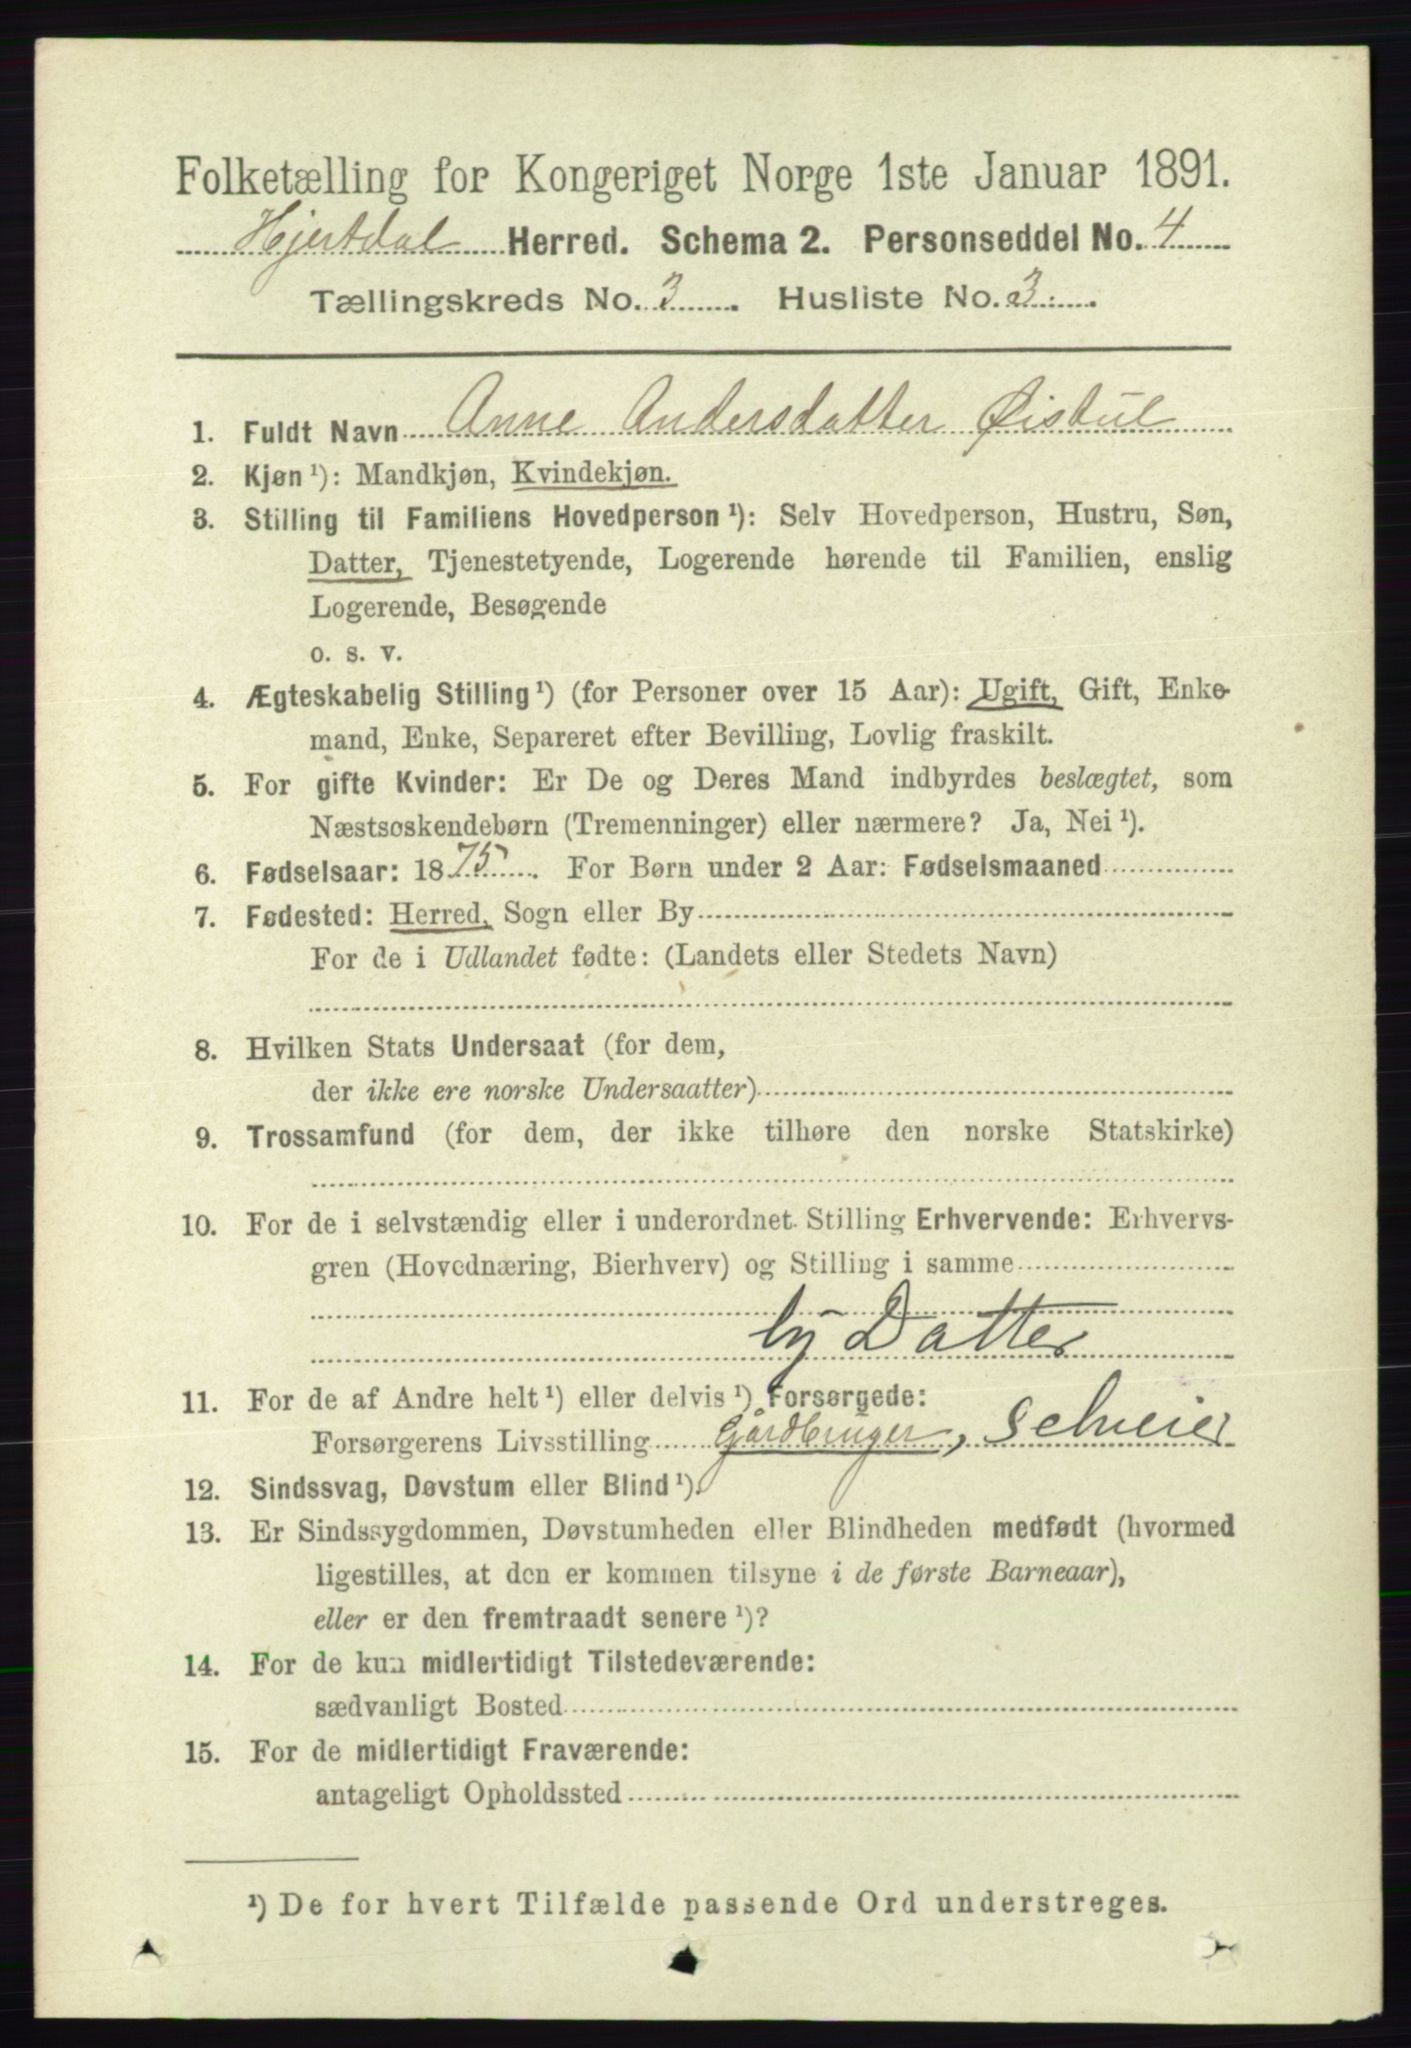 Folketælling for Kongeriget Norge 1ste Januar 1891.
Hjertdal Herred. Schema 2. Personseddel No. 4
Tællingskreds No. 3. Husliste No. 3.
1. Fuldt Navn Anne Andersdatter Øisbül
2. Kjøn ¹): Mandkjøn, Kvindekjøn.
3. Stilling til Familiens Hovedperson ¹): Selv Hovedperson, Hustru, Søn,
Datter, Tjenestetyende, Logerende hørende til Familien, enslig
Logerende, Besøgende
o. s. v.
4. Ægteskabelig Stilling ¹) (for Personer over 15 Aar): Ugift, Gift, Enke-
mand, Enke, Separeret efter Bevilling, Lovlig fraskilt.
5. For gifte Kvinder: Er De og Deres Mand indbyrdes beslægtet, som
Næstsøskendebørn (Tremenninger) eller nærmere? Ja, Nei ¹).
6. Fødselsaar: 1875. For Børn under 2 Aar: Fødselsmaaned
7. Fødested: Herred, Sogn eller By
For de i Udlandet fødte: (Landets eller Stedets Navn)
8. Hvilken Stats Undersaat (for dem,
der ikke ere norske Undersaatter)
9. Trossamfund (for dem, der ikke tilhøre den norske Statskirke)
10. For de i selvstændig eller i underordnet Stilling Erhvervende: Erhvervs-
gren (Hovednæring, Bierhverv) og Stilling i samme
Datter
11. For de af Andre helt ¹) eller delvis ¹) Forsørgede:
Forsørgerens Livsstilling Gårdbruger, Selveier
12. Sindssvag, Døvstum eller Blind ¹).
13. Er Sindssygdommen, Døvstumheden eller Blindheden medfødt (hvormed
ligestilles, at den er kommen tilsyne i de første Barneaar),
eller er den fremtraadt senere ¹)?
14. For de kun midlertidigt Tilstedeværende:
sædvanligt Bosted
15. For de midlertidigt Fraværende:
antageligt Opholdssted
¹) De for hvert Tilfælde passende Ord understreges.